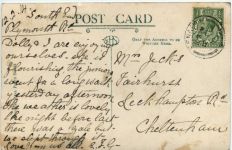 South
Plymouth Rd
POST CARD
ONLY THE ADDRESS TO BE
WRITTEN HERE.
Dolly & I are enjoying
ourselves. She is
flourishing the
for a long walk
yesterday afternoon.
The weather is lovely
the night before last
there was a gale but
we slept through it
Love from us all. E.F.G.
Mrs Jecks
Fairhurst
Leckhampton Rd
Cheltenham